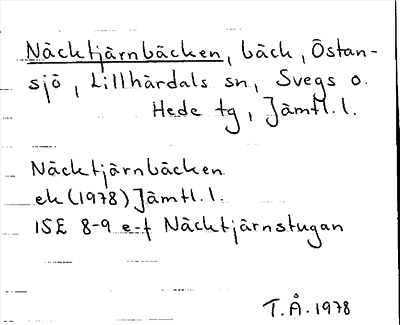 Näcktjärnbäcken, bäck, Östan-
sjö, Lillhärdals sn, Svegs o.
Hede tg, Jämtl. l.
Näcktjärnbäcken
ek (1978) Jämtl. l.
15E 8-9 e-f Näcktjärnstugan
T. Å. 1978